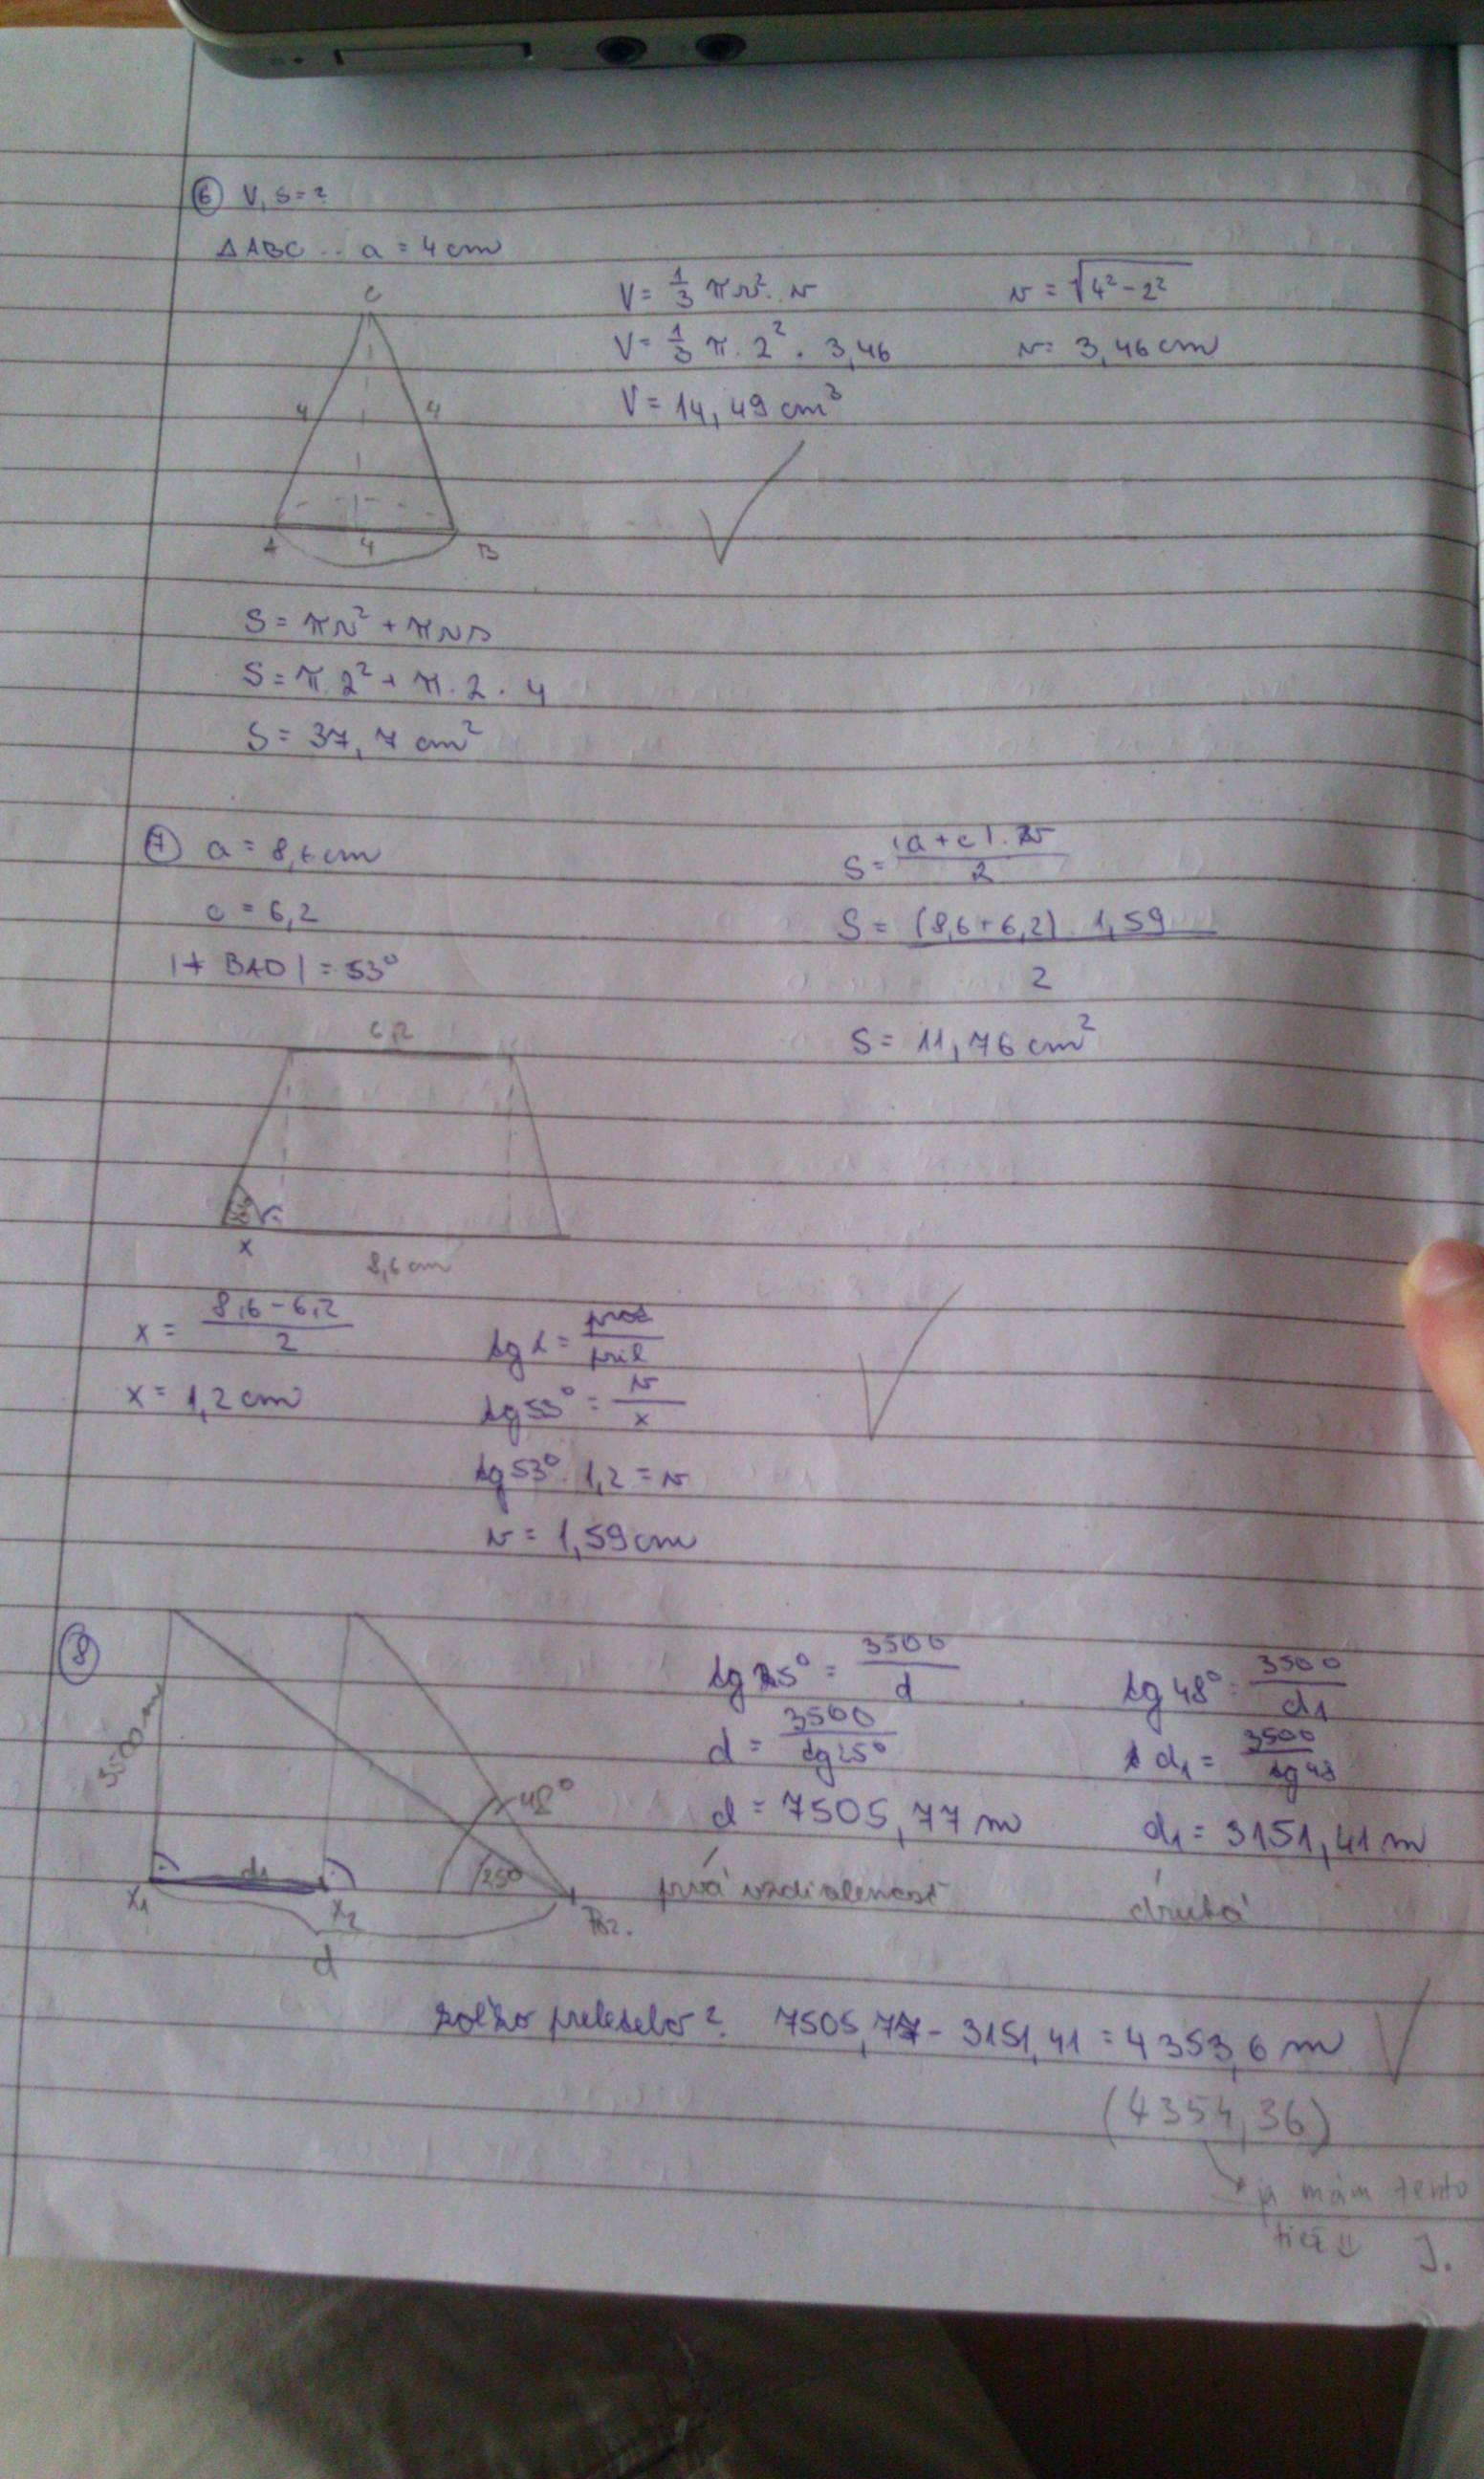 6 V, S = ?
△ABC .. a = 4 cm
C
4
4
A
4
B
V = 1/3 πr². v
V = 1/3 π. 2² . 3,46
V = 14,49 cm³
v = √4² - 2²
v = 3,46 cm
S = πr² + πrs
S = π. 2² + π. 2 . 4
S = 37,7 cm²
7 a = 8,6 cm
c = 6,2
|∢ BAD| = 53°
6,2
x
8,6 cm
S = (a + c). v / 2
S = (8,6 + 6,2). 1,59 / 2
S = 11,76 cm²
x = 8,6 - 6,2 / 2
x = 1,2 cm
tg α = prot / pril
tg 53° = v / x
tg 53°. 1,2 = v
v = 1,59 cm
8
3500 m
48°
25°
d1
x1
x2
d
tg 25° = 3500 / d
d = 3500 / tg 25°
d = 7505,77 m
prvá vzdialenosť
tg 48° = 3500 / d1
d1 = 3500 / tg 48
d1 = 3151,41 m
druhá
koľko preletelo? 7505,77 - 3151,41 = 4353,6 m
(4354,36)
ja mám tento
tiež
J.